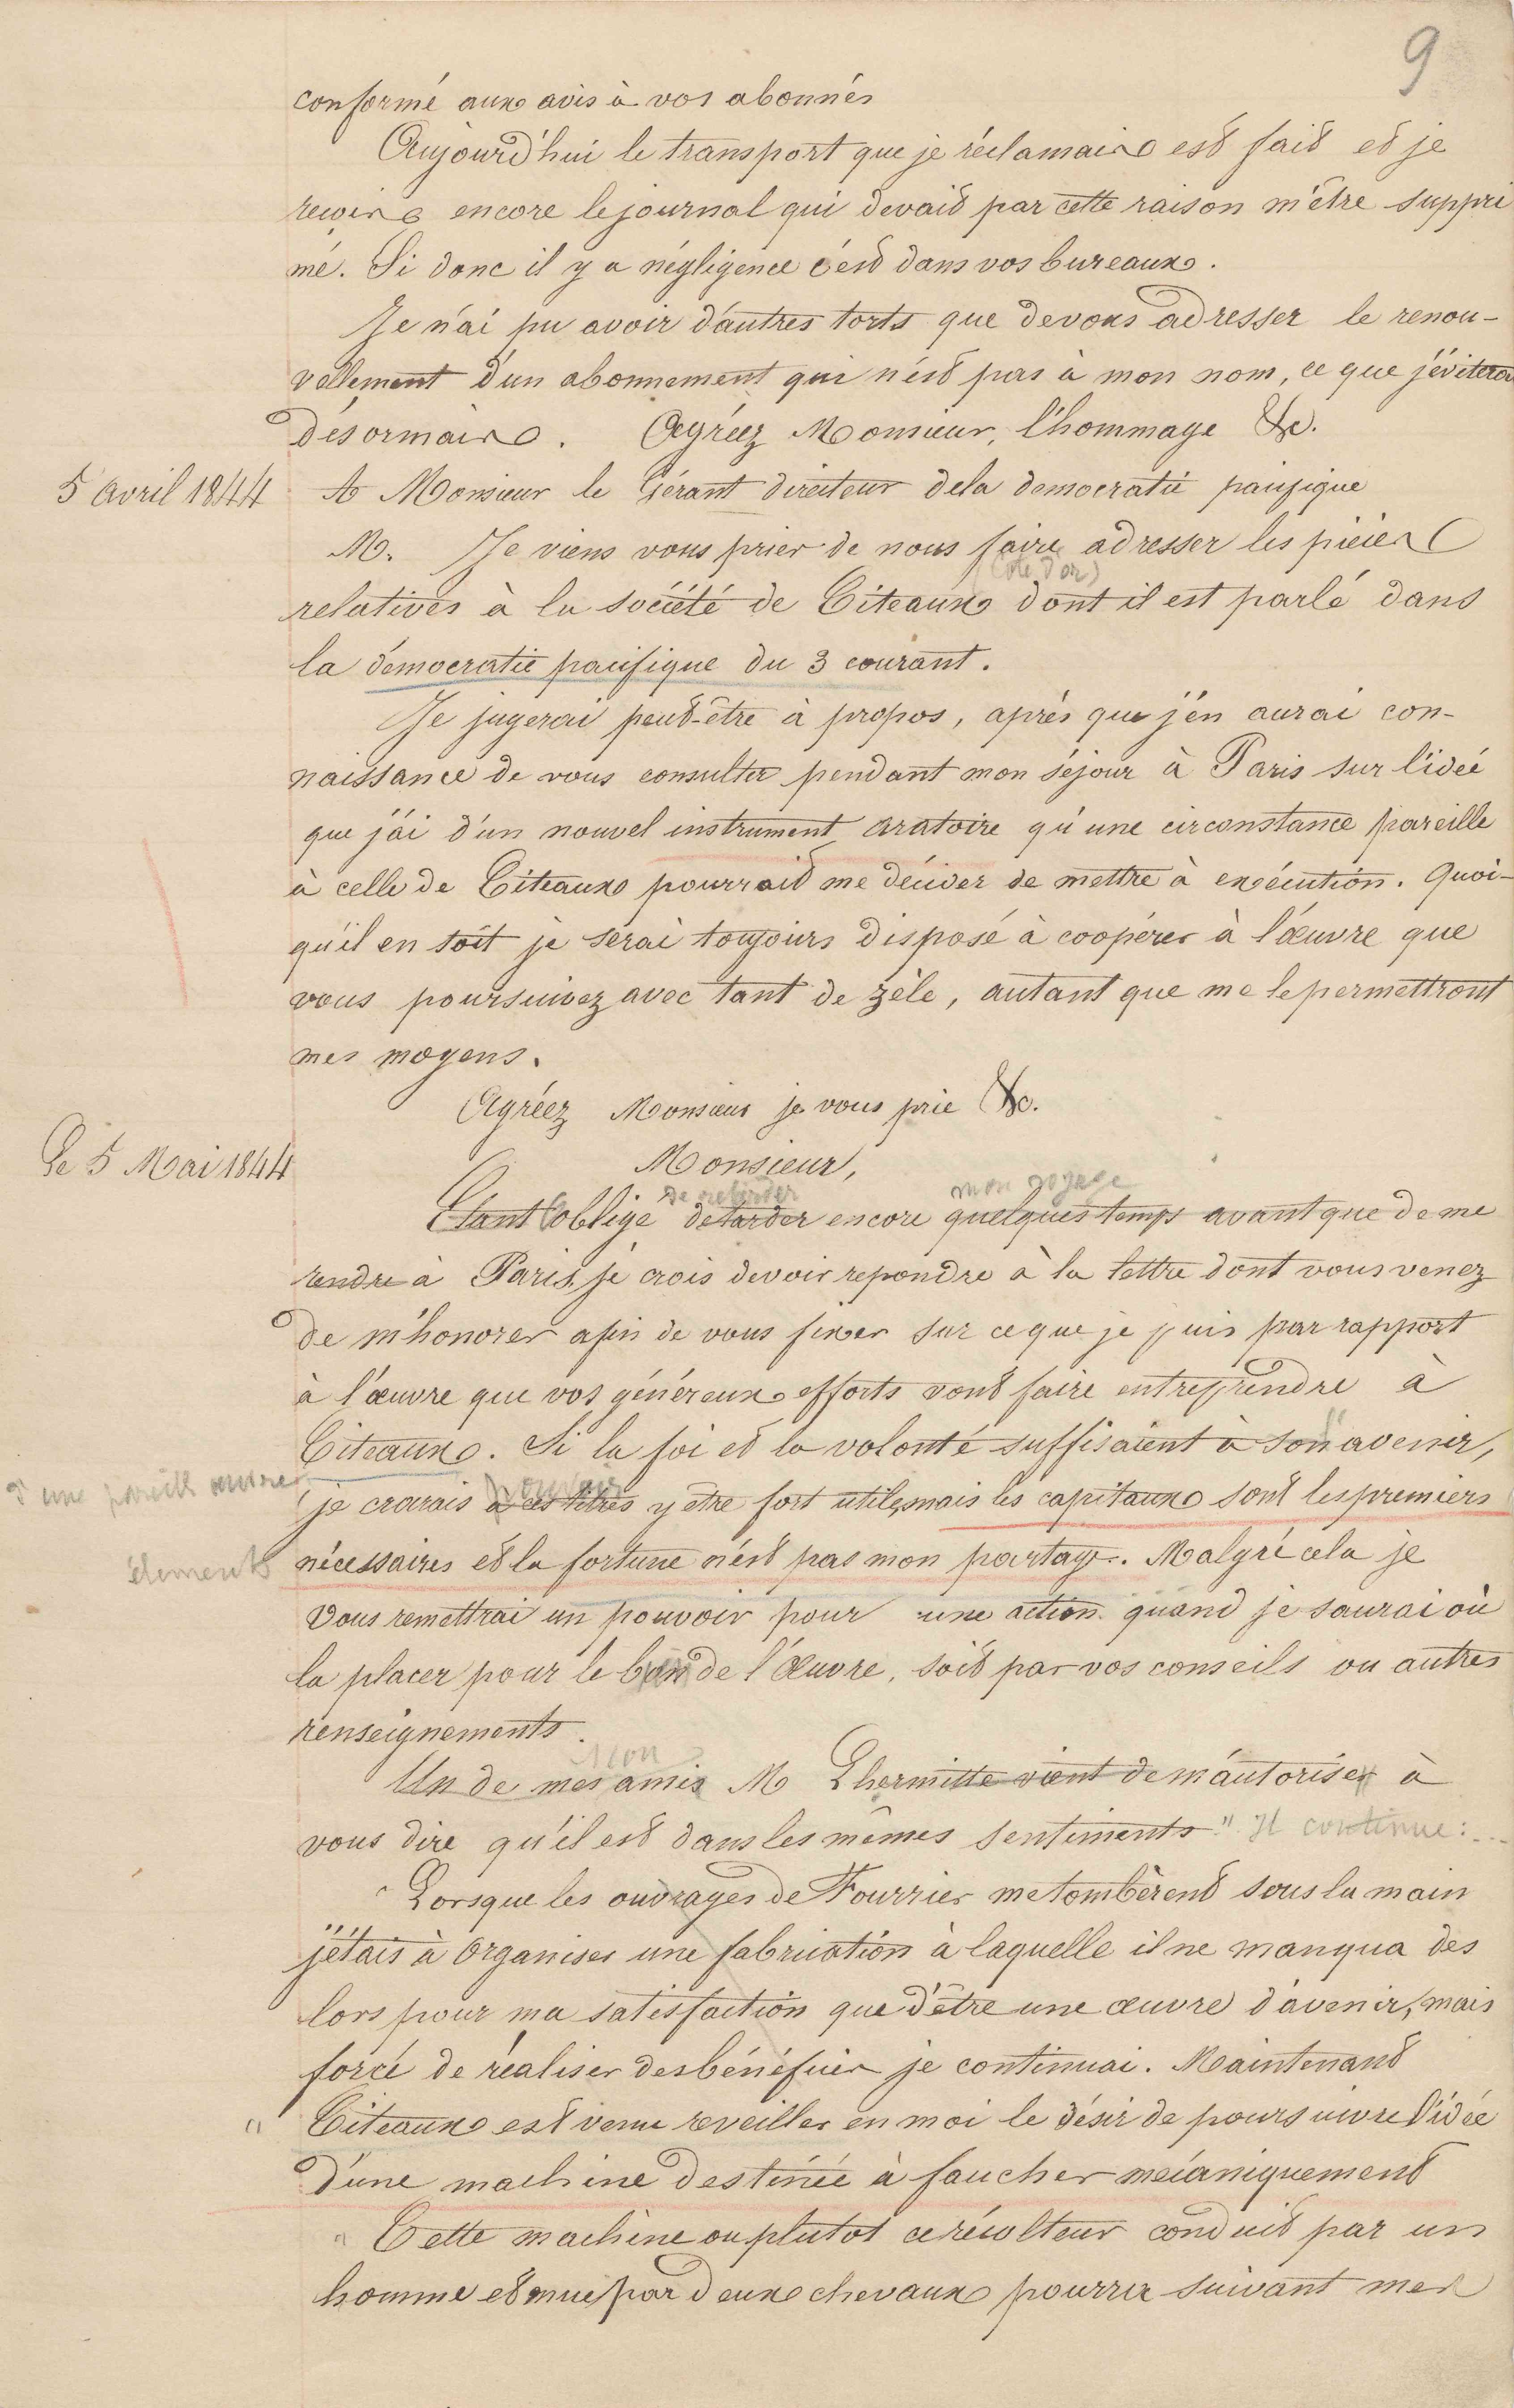 9
conformé aux avis à vos abonnés
Aujourd'hui le transport que je réclamais est fait et je
reçois encore le journal qui devait par cette raison m'être suppri
mé. Si donc il y a négligence c'est dans vos bureaux.
Je n'ai pu avoir d'autres torts que de vous adresser le renou-
vellement d'un abonnement qui n'est pas à mon nom, ce que j'éviterai
désormais. Agréez Monsieur, l'hommage &c.
5 Avril 1844 A Monsieur le Gérant directeur de la democratie pacifique
M. Je viens vous prier de nous faire adresser les pièces
(Côte d'or)
relatives à la société de Citeaux dont il est parlé dans
la démocratie pacifique du 3 courant.
Je jugerai peut-être à propos, après que j'en aurai con-
naissance de vous consulter pendant mon séjour à Paris sur l'idée
que j'ai d'un nouvel instrument aratoire qu'une circonstance pareille
à celle de Citeaux pourrait me décider de mettre à exécution. Quoi-
qu'il en soit je serai toujours disposé à coopérer à l'œuvre que
vous poursuivez avec tant de zèle, autant que me le permettront
mes moyens.
Agréez Monsieur je vous prie &c.
Le 5 Mai 1844 Monsieur,
de retarder mon voyage
Etant obligé de tarder encore quelques temps avant que de me
rendre à Paris, je crois devoir repondre à la lettre dont vous venez
de m'honorer afin de vous fixer sur ce que je puis par rapport
à l'œuvre que vos généreux efforts vont faire entreprendre à
Citeaux. Si la foi et la volonté suffisaient à son avenir,
d'une pareille œuvre pouvoir
je croirais à ces titres y être fort utile, mais les capitaux sont les premiers
éléments nécessaires et la fortune n'est pas mon partage. Malgré cela je
vous remettrai un pouvoir pour une action quand je saurai où
la placer pour le bien de l'Œuvre, soit par vos conseils ou autres
renseignements.
Mon
Un de mes amis M Lhermitte vient de m'autoriser à
vous dire qu'il est dans les mêmes sentiments" Il continue:...
Lorsque les ouvrages de Fourrier me tombèrent sous la main
j'étais à Organiser une fabrication à laquelle il ne manqua des
lors pour ma satisfaction que d'être une œuvre d'avenir, mais
forcé de réaliser des bénéfices je continuai. Maintenant
" Citeaux est venu reveiller en moi le désir de poursuivre l'idée
d'une machine destinée à faucher mécaniquement
" Cette machine ou plutot ce récolteur conduit par un
homme et mue par deux chevaux pourra suivant mes